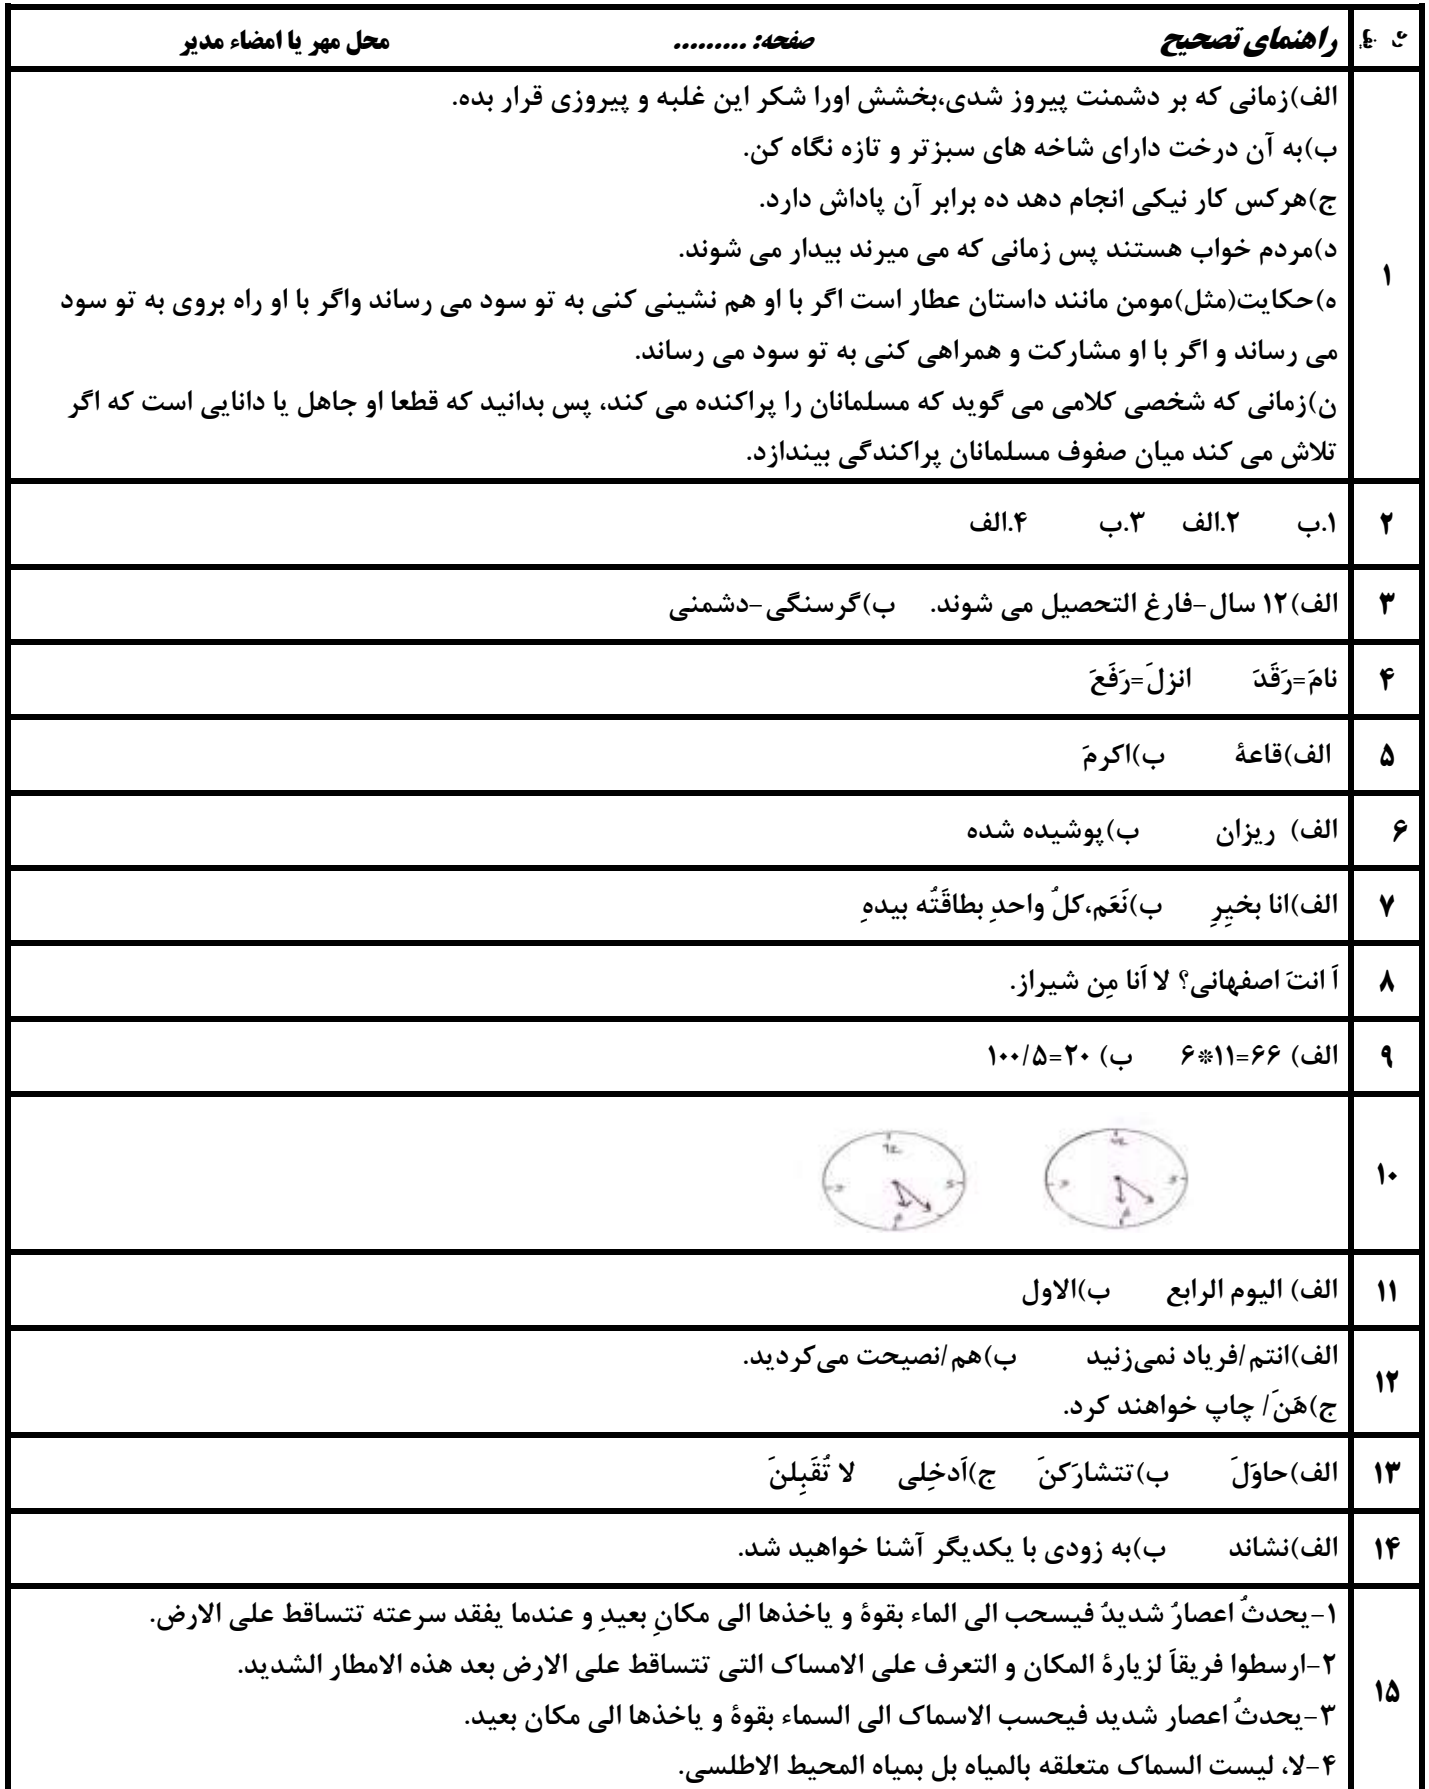 ردیف راهنمای تصحیح صفحه: ......... محل مهر یا امضاء مدیر
۱
الف)زمانی که بر دشمنت پیروز شدی،بخشش اورا شکر این غلبه و پیروزی قرار بده.
ب)به آن درخت دارای شاخه های سبزتر و تازه نگاه کن.
ج)هرکس کار نیکی انجام دهد ده برابر آن پاداش دارد.
د)مردم خواب هستند پس زمانی که می میرند بیدار می شوند.
ه)حکایت(مثل)مومن مانند داستان عطار است اگر با او هم نشینی کنی به تو سود می رساند واگر با او راه بروی به تو سود
می رساند و اگر با او مشارکت و همراهی کنی به تو سود می رساند.
ن)زمانی که شخصی کلامی می گوید که مسلمانان را پراکنده می کند، پس بدانید که قطعا او جاهل یا دانایی است که اگر
تلاش می کند میان صفوف مسلمانان پراکندگی بیندازد.
۲ ۱.ب ۲.الف ۳.ب ۴.الف
۳ الف)۱۲ سال-فارغ التحصیل می شوند. ب)گرسنگی-دشمنی
۴ نامَ=رَقَدَ انزلَ=رَفَعَ
۵ الف)قاعهٔ ب)اکرمَ
۶ الف) ریزان ب)پوشیده شده
۷ الف)انا بخیِرِ ب)نَعَم،کلُ واحدِ بطاقَتُه بیدهِ
۸ اَ انتَ اصفهانی؟ لا اَنا مِن شیراز.
۹ الف) ۶۶=۱۱*۶ ب) ۲۰=۱۰۰/۵
۱۰
۱۱ الف) الیوم الرابع ب)الاول
۱۲
الف)انتم/فریاد نمی‌زنید ب)هم/نصیحت می‌کردید.
ج)هَنَ/ چاپ خواهند کرد.
۱۳ الف)حاوَلَ ب)تتشارَکنَ ج)اَدخِلی لا تُقَبِلنَ
۱۴ الف)نشاند ب)به زودی با یکدیگر آشنا خواهید شد.
۱۵
۱-یحدثُ اعصارُ شدیدُ فیسحب الی الماء بقوهٔ و یاخذها الی مکانِ بعیدِ و عندما یفقد سرعته تتساقط علی الارض.
۲-ارسطوا فریقاَ لزیارهٔ المکان و التعرف علی الامساک التی تتساقط علی الارض بعد هذه الامطار الشدید.
۳-یحدثُ اعصار شدید فیحسب الاسماک الی السماء بقوهٔ و یاخذها الی مکان بعید.
۴-لا، لیست السماک متعلقه بالمیاه بل بمیاه المحیط الاطلسی.